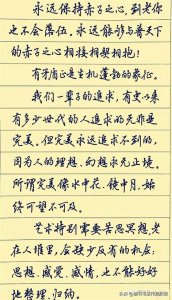 永远保持赤子之心，到老你
也不会落伍。永远能够与普天下
的赤子之心相接相契相抱！
有矛盾正是生机蓬勃的象征。
我们一辈子的追求，有史以来
有多少世代的人追求的无非是
完美。但完美永远追求不到的，
因为人的理想、幻想永无止境。
所谓完美像水中花、镜中月，始
终可望不可及。
艺术特别需要苦思冥想，老
在人堆里，会缺少反省的机会；
思想、感觉、感情，也不能好好
地整理、归纳。